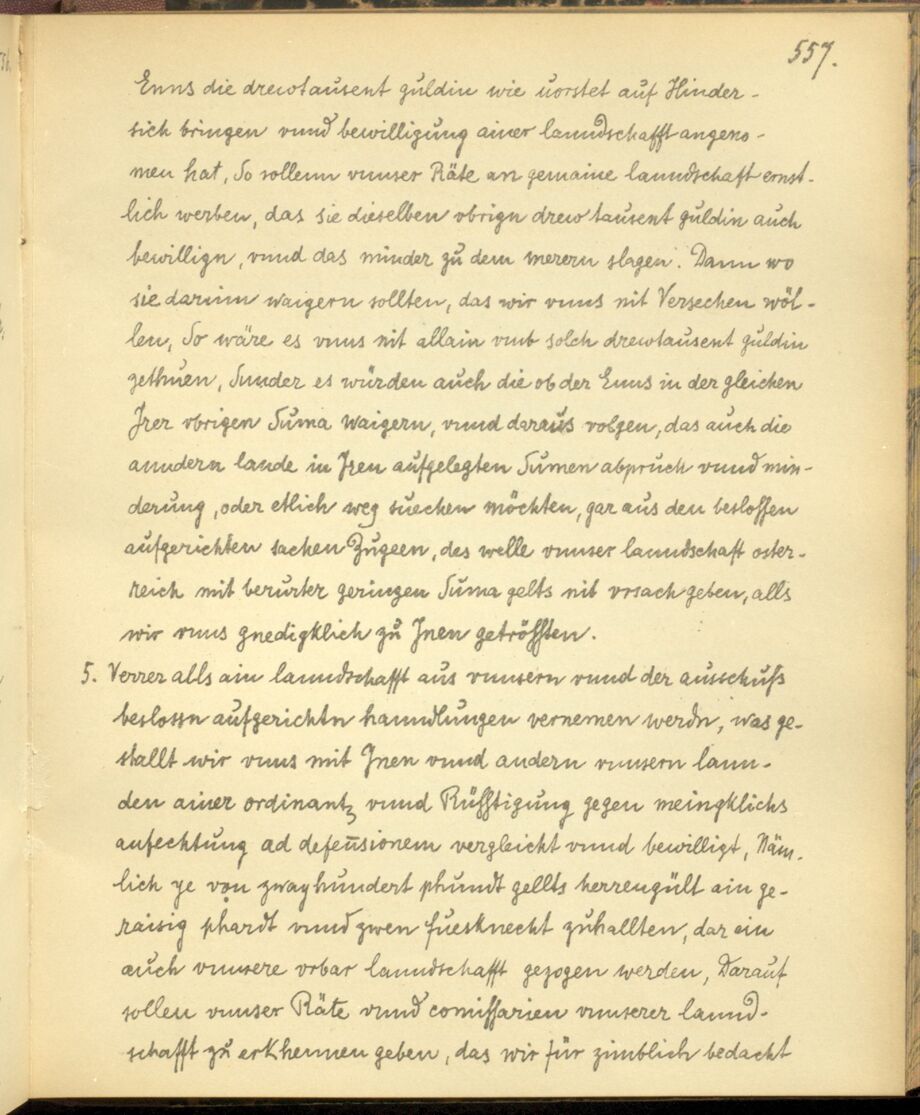 557.
Enns die drewtausent guldin wie vorstet auf Hinder-
sich bringen vnnd bewilligung ainer lanndschafft angeno-
men hat, So sollenn vnnser Räte an gemaine lanndschaft ernst-
lich werben, das sie dieselben vbrign drew tausent guldin auch
bewillign, vnnd das minder zu dem merern slagen. Dann wo
sie darinn waigern sollten, das wir vnns nit Versechen wöl-
len, So wäre es vnns nit allain vmb solch drewtausent guldin
zethuen, Sunder es würden auch die ob der Enns in der gleichen
Irer vbrigen Suma waigern, vnnd daraus volgen, das auch die
anndern lande in Iren aufgelegten Sumen abpruch vnnd min-
derung, oder etlich weg suechen möchten, gar aus den beslossen
aufgerichten sachen Zugeen, des welle vnnser lanndschaft oster-
reich mit berurter geringen Suma gelts nit vrsach geben, alls
wir vnns gnedigklich zu Inen getrössten.
5. Verrer alls ain lanndschafft aus vnnsern vnnd der ausschuss
beslossn aufgerichtn hanndlungen vernemen werdn, was ge-
stallt wir vnns mit Inen vnnd andern vnnsern lann-
den ainer ordinantz vnnd Rüsstigung gegen meingklichs
anfechtung ad defensionem vergleicht vnnd bewilligt, Näm-
lich ye von zwayhundert phundt gellts herrengült ain ge-
raisig phardt vnnd zwen fuesknecht zuhallten, dar ein
auch vnnsere vrbar lanndschafft gezogen werden, Darauf
sollen vnnser Räte vnnd comissarien vnnserer lannd-
schafft zu erkhennen geben, das wir für zimblich bedacht